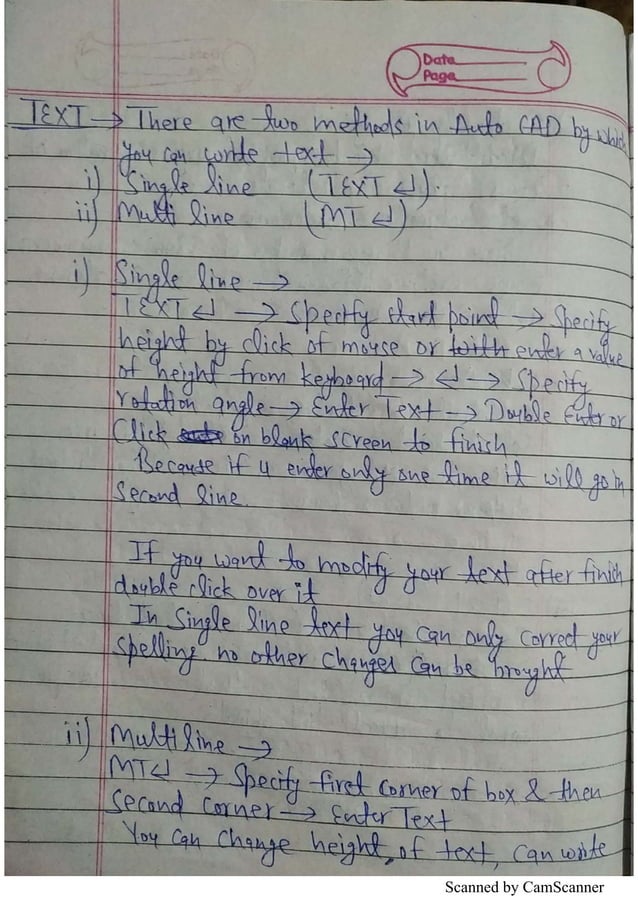 Date
Page
TEXT → There are two methods in Auto CAD by which
you can write text →
i) Single line (TEXT ↵).
ii) Multi line (MT ↵)
i) Single line →
TEXT ↵ → Specify start point → Specify
height by click of mouse or with enter a value
of height from keyboard → ↵ → Specify
rotation angle → Enter Text → Double Enter or
Click on blank screen to finish
Because if u enter only one time it will go in
Second line.
If you want to modify your text after finish
double click over it
In Single line text you can only correct your
spelling no other changes can be brought
ii) Multi line →
MT ↵ → Specify first corner of box & then
second corner → Enter Text
You can change height, of text, can write
Scanned by CamScanner